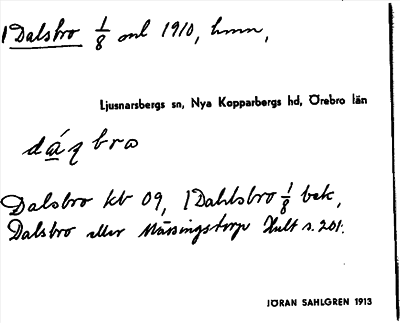 1 Dalsbro 1/8 ml 1910, hmn,
Ljusnarsbergs sn, Nya Kopparbergs hd, Örebro län
dáq bro
Dalsbro kb 09, 1 Dahlsbro 1/8 bek,
Dalsbro eller Mässingstorp Hult s. 201.
JÖRAN SAHLGREN 1913